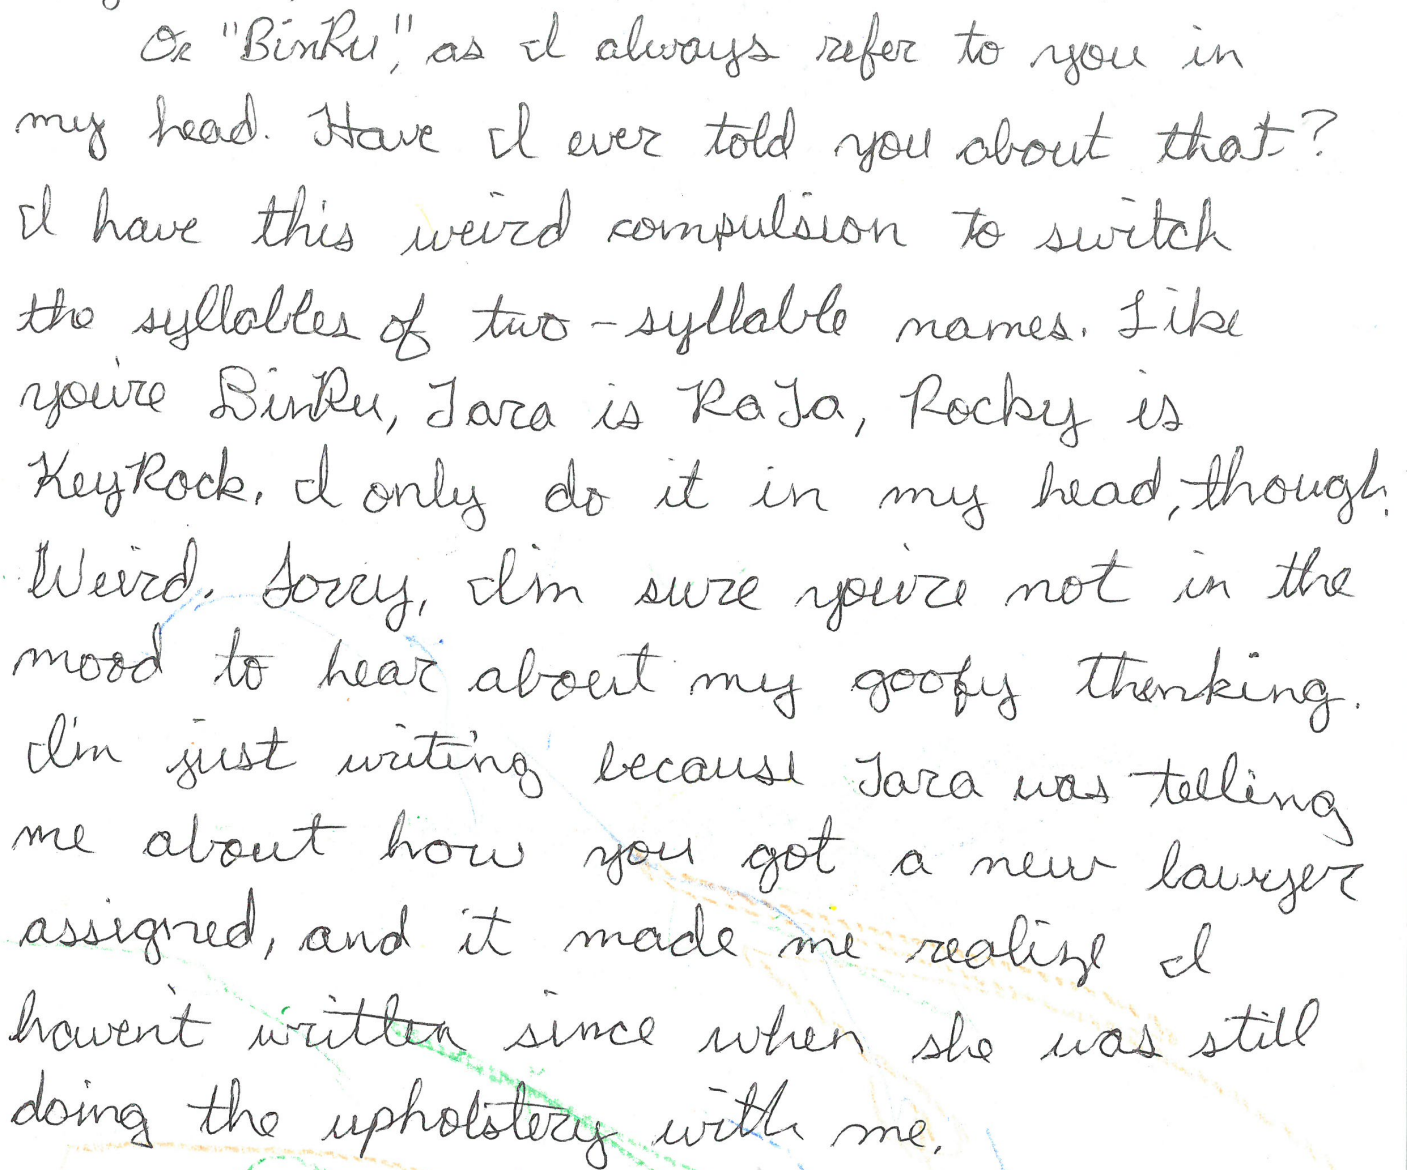 Or "BinRu", as I always refer to you in
my head. Have I ever told you about that?
I have this weird compulsion to switch
the syllables of two-syllable names. Like
you're BinRu, Tara is RaTa, Rocky is
KeyRock. I only do it in my head, though.
Weird. Sorry, I'm sure you're not in the
mood to hear about my goofy thinking.
I'm just writing because Tara was telling
me about how you got a new lawyer
assigned, and it made me realize I
haven't written since when she was still
doing the upholstery with me.